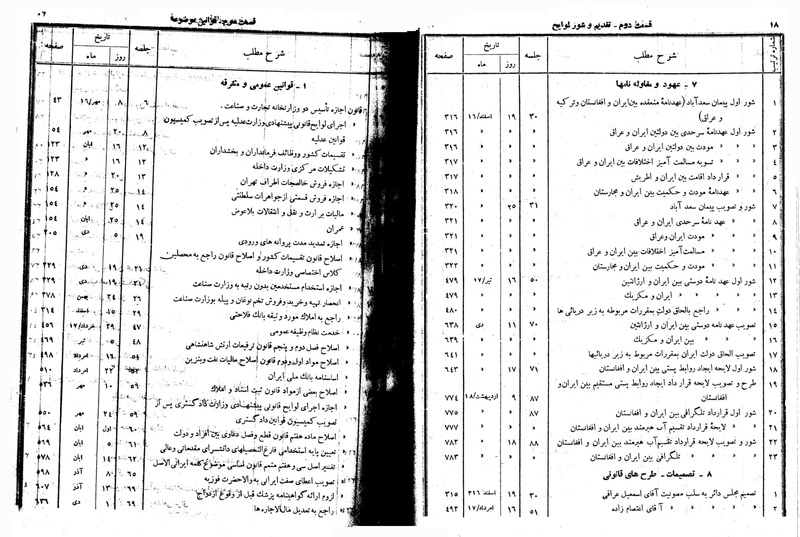 ۱۸
قسمت دوم - تقدیم و شور لوایح
شماره ترتیب
شرح مطلب
جلسه
تاریخ
روز
ماه
صفحه
۷ - عهود و مقاوله نامها
۱ شور اول پیمان سعدآباد (عهدنامهٔ منعقده بین ایران و افغانستان و ترکیه
و عراق) ۳۰ ۱۹ اسفند/۱۶ ۳۱۶
۲ شور اول عهدنامهٔ سرحدی بین دولتین ایران و عراق » » » ۳۱۶
۳ » » » مودت بین دولتین ایران و عراق » » » ۳۱۶
۴ » » » تسویه مسالمت آمیز اختلافات بین ایران و عراق » » » ۳۱۷
۵ » » قرارداد اقامت بین ایران و اطریش » » » ۳۱۷
۶ » » عهدنامهٔ مودت و حکمیت بین ایران و مجارستان » » » ۳۱۸
۷ شور و تصویب پیمان سعد آباد ۳۱ ۲۵ » ۳۲۰
۸ » » عهد نامهٔ سرحدی ایران و عراق » » » ۳۲۱
۹ » » » مودت ایران وعراق » » » ۳۲۱
۱۰ » » » مسالمت‌آمیز اختلافات بین ایران و عراق » » » ۳۲۱
۱۱ » » » مودت و حکمیت بین ایران و مجارستان » » » ۳۲۲
۱۲ شور اول عهد نامهٔ دوستی بین ایران و آرژانتین ۵۰ ۱۶ تیر/۱۷ ۴۷۹
۱۳ » » » » ایران و مکزیک » » » ۴۷۹
۱۴ » » راجع بالحاق دولت بمقررات مربوطه به زیر دریائی ها » » » ۴۸۰
۱۵ تصویب عهد نامه دوستی بین ایران و ارژانتین ۷۰ ۱۱ دی ۶۳۸
۱۶ » » » بین ایران و مکزیک » » » ۶۳۹
۱۷ تصویب الحاق دولت ایران بمقررات مربوط به زیر دریائیها » » » ۶۴۱
۱۸ شور اول لایحه ایجاد روابط پستی بین ایران و افغانستان ۷۱ ۱۷ » ۶۴۳
۱۹ طرح و تصویب لایحه قرار داد ایجاد روابط پستی مستقیم بین ایران و
افغانستان ۸۷ ۹ اردیبهشت/۱۸ ۷۷۴
۲۰ شور اول قرارداد تلگرافی بین ایران و افغانستان ۸۷ » » ۷۷۵
۲۱ » » لایحهٔ قرارداد تقسیم آب هیرمند بین ایران و افغانستان » » » ۷۷۷
۲۲ شور و تصویب لایحه قرارداد تقسیم آب هیرمند بین ایران و افغانستان ۸۸ ۱۸ » ۷۸۲
۲۳ » » » » تلگرافی بین ایران و افغانستان » » » ۷۸۳
۸ - تصمیمات - طرح های قانونی
۱ تصمیم مجلس دائر به سلب مصونیت آقای اسمعیل عراقی ۳۰ ۱۹ اسفند/۱۶ ۳۱۵
۲ » » » » » آقای اعتصام زاده ۵۱ ۱۶ امرداد/۱۷ ۴۹۲
قسمت سوم - قوانین موضوعه
شرح مطلب
جلسه
تاریخ
روز
ماه
صفحه
۱ - قوانین عمومی و متفرقه
قانون اجازه تأسیس دو وزارتخانه تجارت و صناعت ۶ ۸ مهر/۱۶ ۴۳
» اجرای لوایح قانونی پیشنهادی وزارت عدلیه پس از تصویب کمیسیون
قوانین عدلیه ۸ ۲۰ مهر ۵۴
» تقسیمات کشور و وظائف فرمانداران و بخشداران ۱۲ ۱۶ آبان ۱۲۳
» تشکیلات مرکزی وزارت داخله
» اجازه فروش خالصجات اطراف تهران
» اجازه فروش قسمتی از جواهرات سلطنتی
» مالیات بر ارث و نقل و انتقالات بلاعوض
» عمران
» اجازه تمدید مدت پروانه های ورودی
» اصلاح قانون تقسیمات کشور و اصلاح قانون راجع به محصلین
کلاس اختصاصی وزارت داخله
» اجازه استخدام مستخدمین بدون رتبه به وزارت صناعت
» انحصار تهیه و خرید و فروش تخم نوغان و پیله بوزارت صناعت
» راجع به املاک مورد وثیقه بانک فلاحتی
» خدمت نظام وظیفه عمومی
» اصلاح فصل دوم و پنجم قانون ترفیعات ارتش شاهنشاهی
» اصلاح مواد اول و دوم قانون اصلاح مالیات نفت و بنزین
» اساسنامه بانک ملی ایران
» اصلاح بعضی از مواد قانون ثبت اسناد و املاک
» اجازه اجرای لوایح قانونی پیشنهادی وزارت دادگستری پس از
تصویب کمیسیون قوانین دادگستری
» اصلاح ماده هفتم قانون قطع و فصل دعاوی بین افراد و دولت
» تعیین پایه استخدامی فارغ التحصیلهای دانشسرای مقدماتی و عالی
» تفسیر اصل سی و هفتم متمم قانون اساسی موضوع کلمه ایرانی الاصل
» تصویب اعطای صفت ایرانی به والاحضرت فوزیه
» لزوم ارائه گواهینامه پزشک قبل از وقوع ازدواج
» راجع به تعدیل مال الاجاره ها